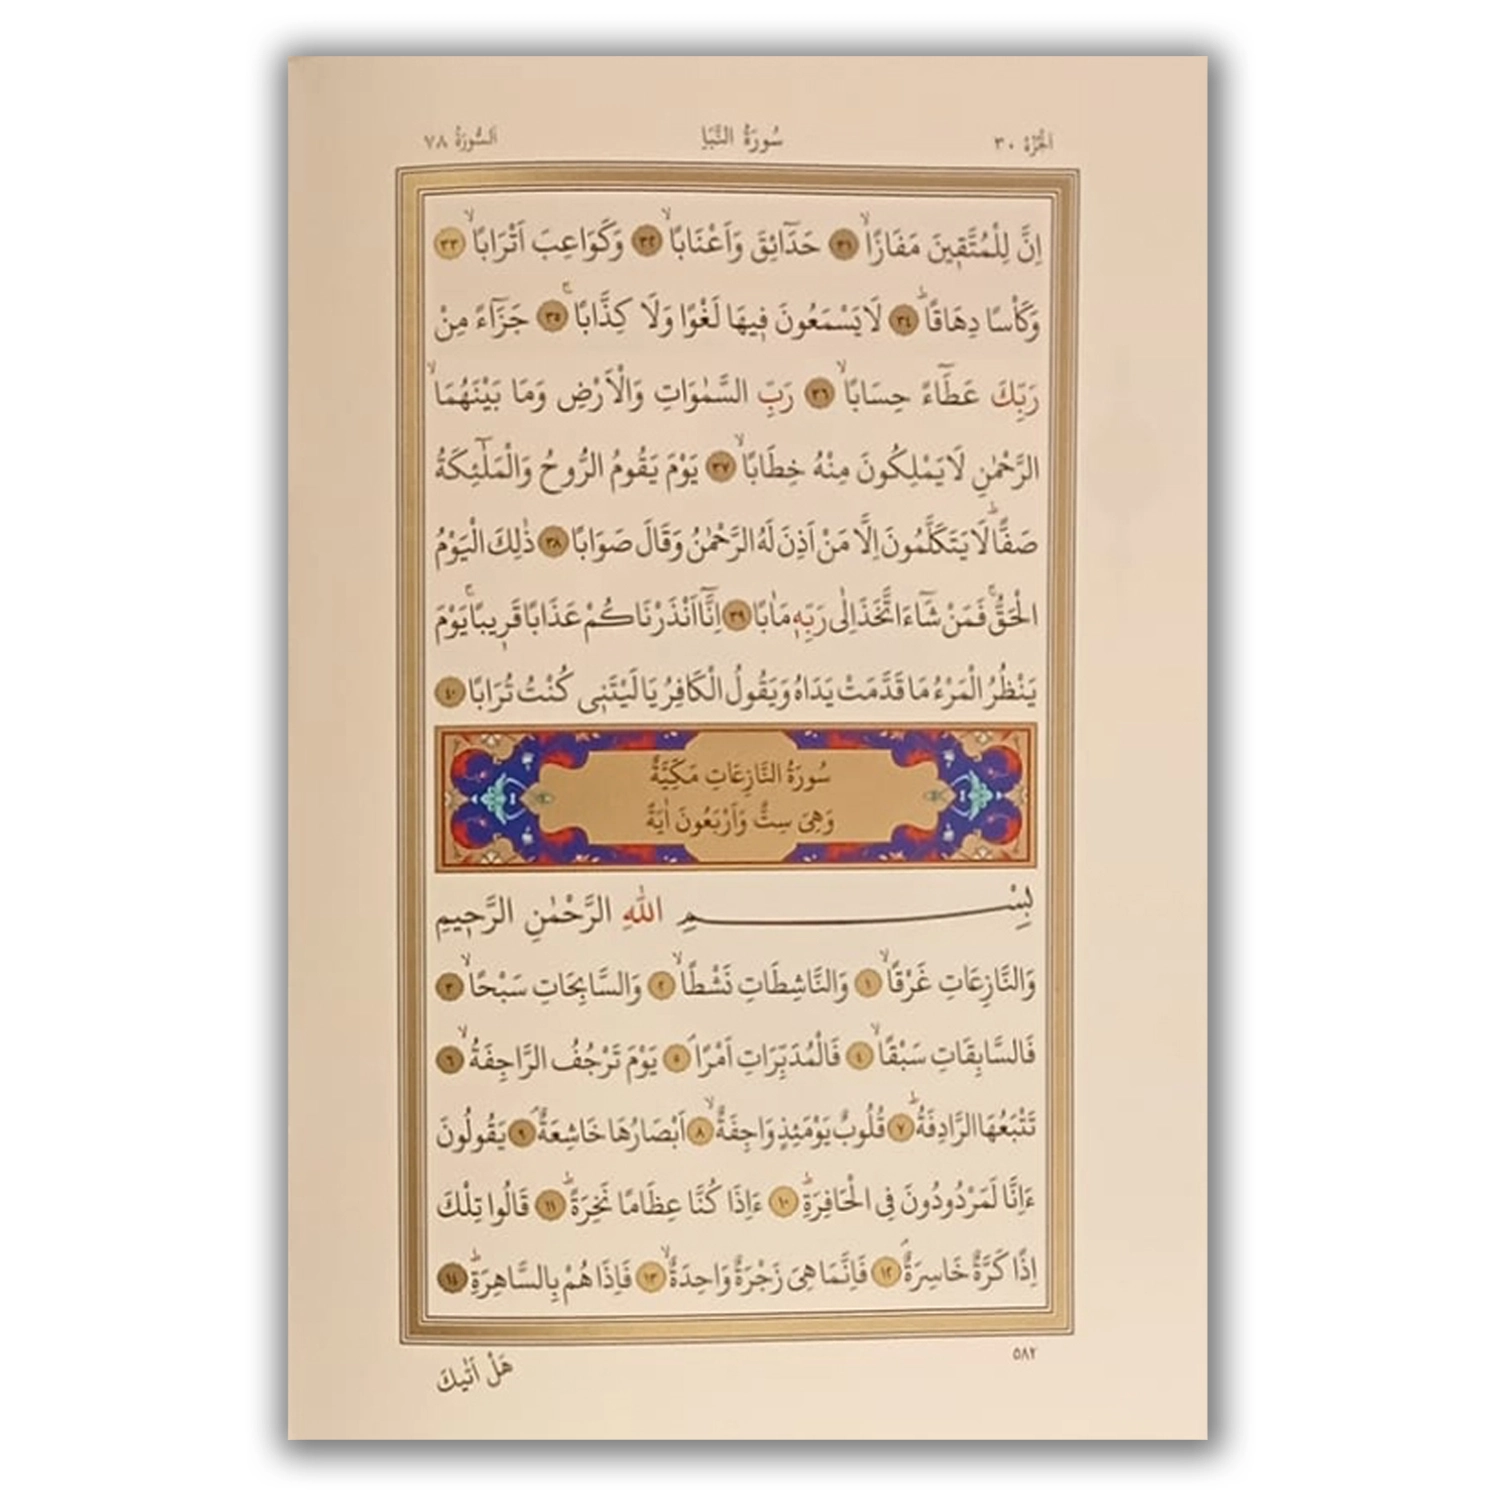 اَلْجُزْءُ ٣٠ سُورَةُ النَّبَأِ اَلسُّورَةُ ٧٨
اِنَّ لِلْمُتَّق۪ينَ مَفَازًاۙ ٣١ حَدَٓائِقَ وَاَعْنَابًاۙ ٣٢ وَكَوَاعِبَ اَتْرَابًاۙ ٣٣
وَكَأْسًا دِهَاقًاۜ ٣٤ لَا يَسْمَعُونَ ف۪يهَا لَغْوًا وَلَا كِذَّابًاۚ ٣٥ جَزَٓاءً مِنْ
رَبِّكَ عَطَٓاءً حِسَابًاۙ ٣٦ رَبِّ السَّمٰوَاتِ وَالْاَرْضِ وَمَا بَيْنَهُمَاۙ
الرَّحْمٰنِ لَا يَمْلِكُونَ مِنْهُ خِطَابًاۙ ٣٧ يَوْمَ يَقُومُ الرُّوحُ وَالْمَلٰٓئِكَةُ
صَفًّاۜ لَا يَتَكَلَّمُونَ اِلَّا مَنْ اَذِنَ لَهُ الرَّحْمٰنُ وَقَالَ صَوَابًا ٣٨ ذٰلِكَ الْيَوْمُ
الْحَقُّۚ فَمَنْ شَٓاءَ اتَّخَذَ اِلٰى رَبِّه۪ مَاٰبًا ٣٩ اِنَّٓا اَنْذَرْنَاكُمْ عَذَابًا قَر۪يبًاۚ يَوْمَ
يَنْظُرُ الْمَرْءُ مَا قَدَّمَتْ يَدَاهُ وَيَقُولُ الْكَافِرُ يَا لَيْتَن۪ى كُنْتُ تُرَابًا ٤٠
سُورَةُ النَّازِعَاتِ مَكِّيَّةٌ
وَهِىَ سِتٌّ وَاَرْبَعُونَ اٰيَةً
بِسْمِ اللّٰهِ الرَّحْمٰنِ الرَّح۪يمِ
وَالنَّازِعَاتِ غَرْقًاۙ ١ وَالنَّاشِطَاتِ نَشْطًاۙ ٢ وَالسَّابِحَاتِ سَبْحًاۙ ٣
فَالسَّابِقَاتِ سَبْقًاۙ ٤ فَالْمُدَبِّرَاتِ اَمْرًاۢ ٥ يَوْمَ تَرْجُفُ الرَّاجِفَةُۙ ٦
تَتْبَعُهَا الرَّادِفَةُۜ ٧ قُلُوبٌ يَوْمَئِذٍ وَاجِفَةٌۙ ٨ اَبْصَارُهَا خَاشِعَةٌۢ ٩ يَقُولُونَ
ءَاِنَّا لَمَرْدُودُونَ فِى الْحَافِرَةِۜ ١٠ ءَاِذَا كُنَّا عِظَامًا نَخِرَةًۜ ١١ قَالُوا تِلْكَ
اِذًا كَرَّةٌ خَاسِرَةٌۢ ١٢ فَاِنَّمَا هِىَ زَجْرَةٌ وَاحِدَةٌۙ ١٣ فَاِذَا هُمْ بِالسَّاهِرَةِۜ ١٤
٥٨٢
هَلْ اَتٰيكَ